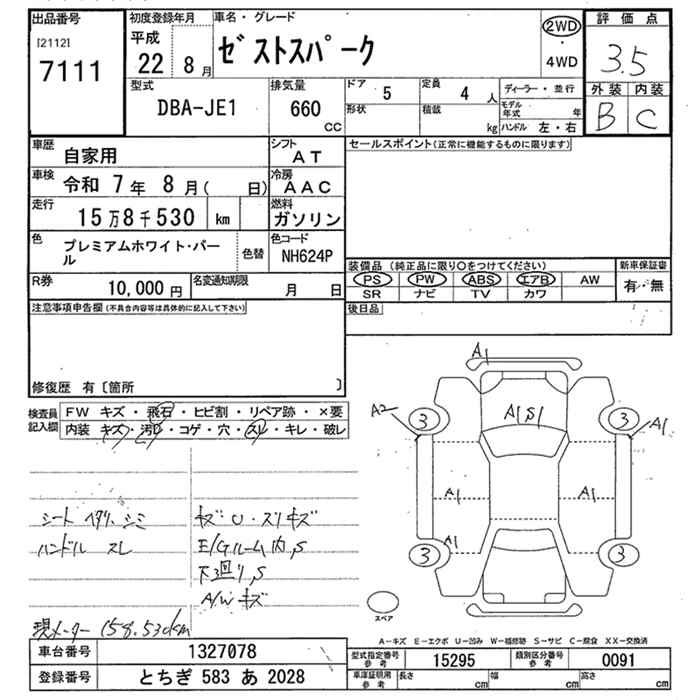 出品番号
[2112]
7111
初度登録年月
平成
22 8 月
車名・グレード
ゼストスパーク
2WD
・
4WD
評価点
3.5
外装 内装
B C
型式
DBA-JE1
排気量
660
CC
ドア 5
形状
定員 4 人
積載 kg
ディーラー・並行
モデル年式 年
ハンドル 左・右
車歴 自家用
シフト AT
セールスポイント(正常に機能するものに限ります)
車検 令和 7 年 8 月( 日)
冷房 AAC
走行 15 万 8 千 530 km
燃料 ガソリン
色 プレミアムホワイト・パール
色替
色コード NH624P
装備品 (純正品に限り○をつけてください)
PS PW ABS エアB AW
SR ナビ TV カワ
新車保証書
有・無
R券 10,000 円
名変通知期限 月 日
後日品
注意事項申告欄(不具合内容等は具体的に記入して下さい)
修復歴 有〔箇所 〕
検査員記入欄
FW キズ・飛石・ヒビ割・リペア跡・×要
内装 キズ・汚レ・コゲ・穴・スレ・キレ・破レ
シート ヘタリ、シミ
ハンドル スレ
キズ U・スリキズ
E/Gルーム内,S
下回り,S
A/W キズ
現メーター 158,530km
A1
A2
3
A1 S1
3
A1
A1
A1
A1
3
3
スペア
A-キズ E-エクボ U-凹み W-補修跡 S-サビ C-腐食 XX-交換済
車台番号 1327078
登録番号 とちぎ 583 あ 2028
型式指定番号 参考 15295
類別区分番号 参考 0091
車庫証明用 参考
長さ cm
幅 cm
高さ cm